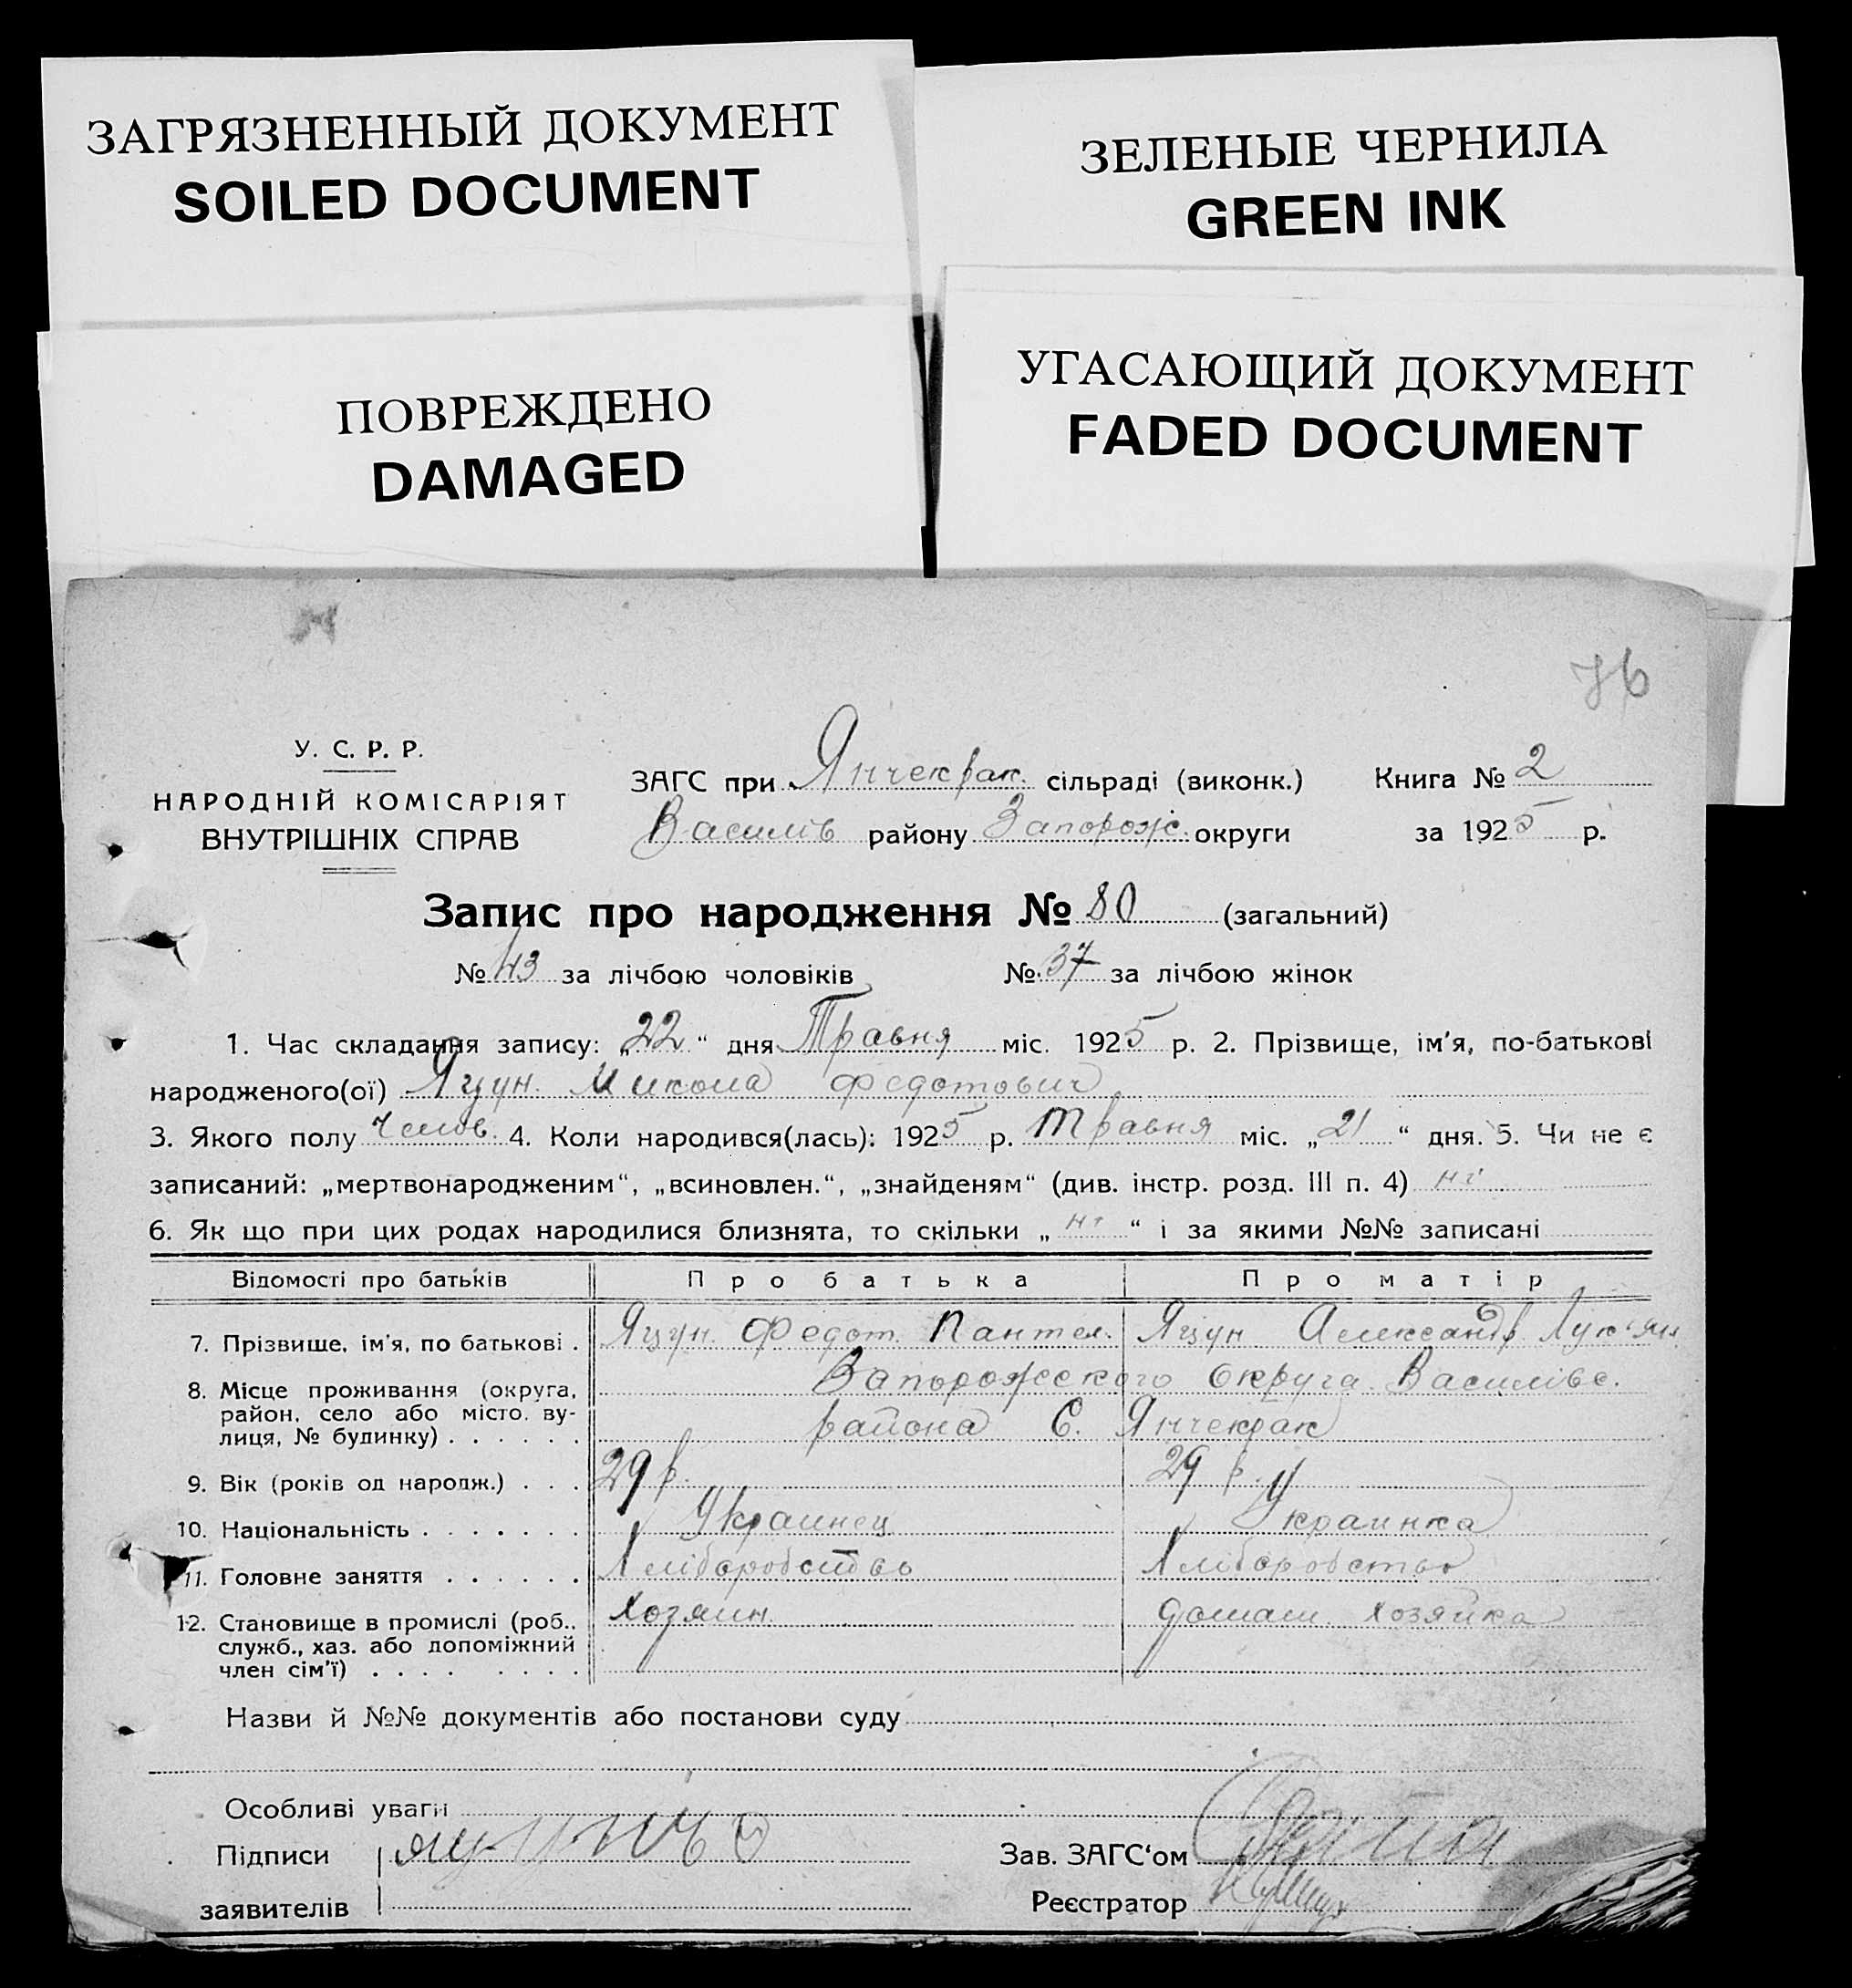 ЗАГРЯЗНЕННЫЙ ДОКУМЕНТ
SOILED DOCUMENT
ЗЕЛЕНЫЕ ЧЕРНИЛА
GREEN INK
ПОВРЕЖДЕНО
DAMAGED
УГАСАЮЩИЙ ДОКУМЕНТ
FADED DOCUMENT
76
У. С. Р. Р.
НАРОДНІЙ КОМІСАРІЯТ
ВНУТРІШНІХ СПРАВ
ЗАГС при Янчекрак. сільраді (виконк.) Книга № 2
Василів району Запорож. округи за 1925 р.
Запис про народження № 80 (загальний)
№ 43 за лічбою чоловіків № 37 за лічбою жінок
1. Час складання запису: „22“ дня Травня міс. 1925 р. 2. Прізвище, ім'я, по-батькові
народженого(ої) Яцун. Микола Федотович
3. Якого полу Чолов. 4. Коли народився(лась): 1925 р. Травня міс. „21“ дня. 5. Чи не є
записаний: „мертвонародженим“, „всиновлен.“, „знайденям“ (див. інстр. розд. III п. 4) ні
6. Як що при цих родах народилися близнята, то скільки „ні“ і за якими №№ записані
Відомості про батьків Про батька Про матір
7. Прізвище, ім'я, по батькові . Яцун. Федот. Пантел. Яцун Александр. Лук'ян
8. Місце проживання (округа, район, село або місто, вулиця, № будинку) . . . . . . Запорожского округа Василівс.
района С. Янчекрак
9. Вік (років од народж.) . . . 29 р. 29 р.
10. Національність . . . . . . . Украинец Украинка
11. Головне заняття . . . . . . Хліборобство Хліборобство
12. Становище в промислі (роб., служб., хаз. або допоміжний член сім'ї) . . . . . . . . Хозяин. домаш. хозяйка
Назви й №№ документів або постанови суду
Особливі уваги
Підписи Зав. ЗАГС'ом
заявителів Реєстратор